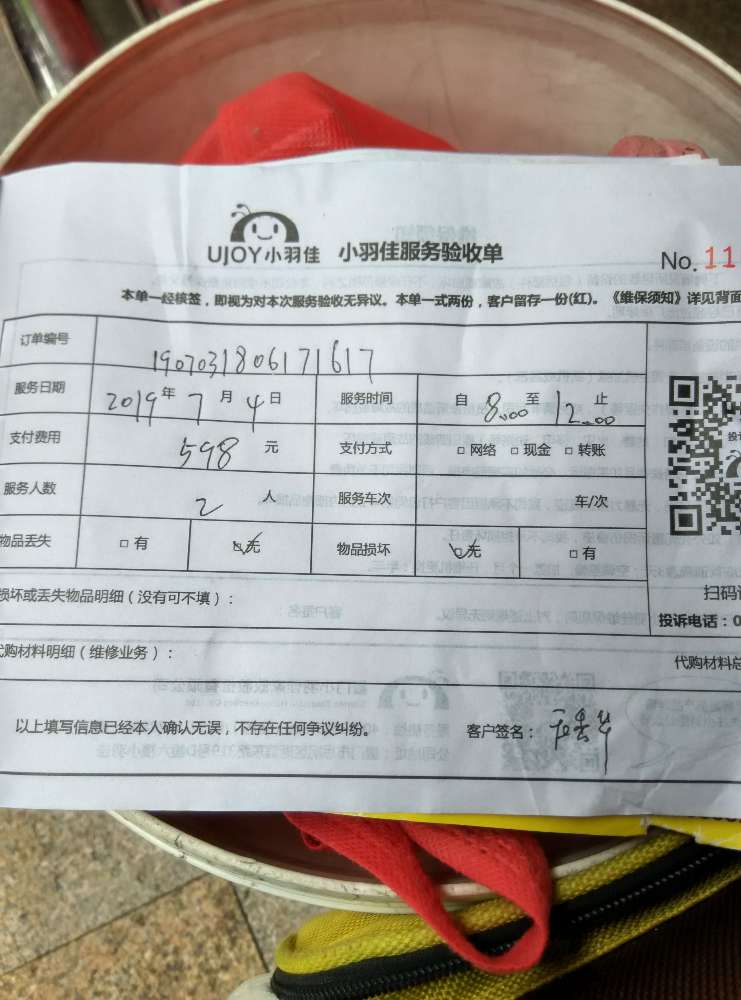 UJOY小羽佳 小羽佳服务验收单
No. 11
本单一经核签，即视为对本次服务验收无异议。本单一式两份，客户留存一份(红)。《维保须知》详见背面
订单编号 1907031806171617
服务日期 2019年7月4日 服务时间 自8:00至12:00止
支付费用 598元 支付方式 □网络 □现金 □转账
服务人数 2人 服务车次 车/次
物品丢失 □有 ☑无 物品损坏 ☑无 □有
损坏或丢失物品明细（没有可不填）：
扫码
投诉电话：0
代购材料明细（维修业务）：
代购材料总
以上填写信息已经本人确认无误，不存在任何争议纠纷。 客户签名：